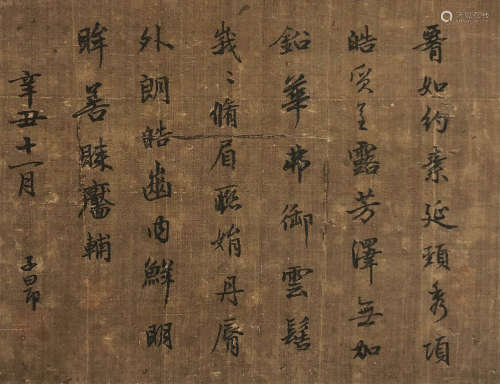 脊如約素延頸秀項
皓質呈露芳澤無加
鉛華弗御雲髻
峩〻脩眉聯娟丹脣
外朗皓齒內鮮明
眸善睞靨輔
辛丑十一月
子昂